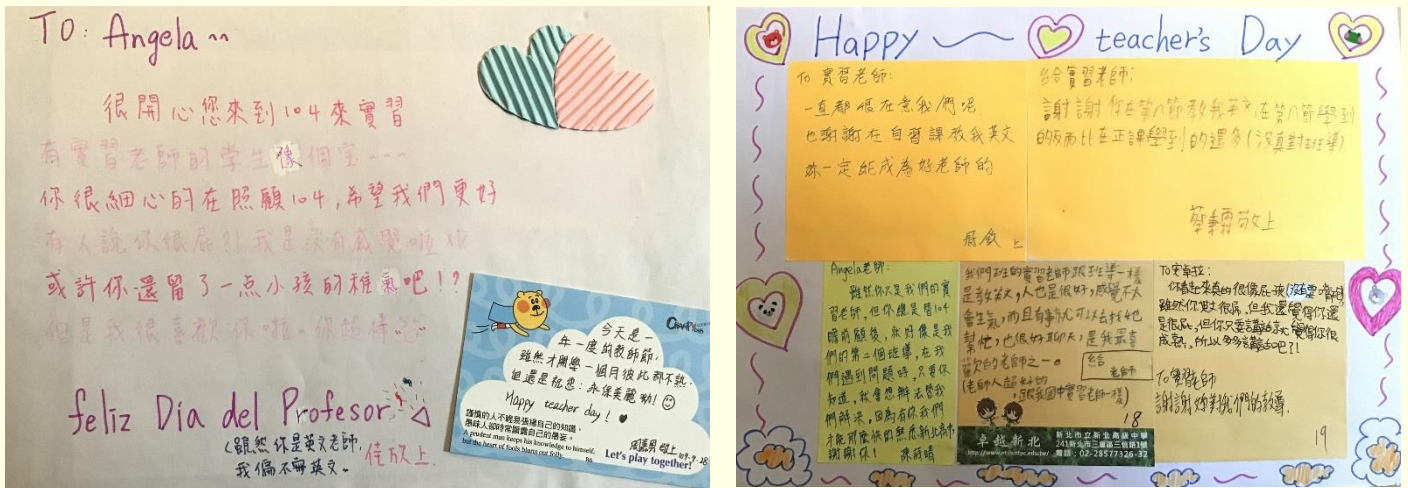 TO: Angela ~~
很開心您來到104來實習
有實習老師的学生像個宝~~~
你很細心的在照顧104,希望我們更好
有人說你很屁?!我是沒有感覺啦
或許你還留了一点小孩的稚氣吧!!?
但是我很喜歡你啦。你超棒
feliz Día del Profesor
(雖然你是英文老師,
我偏不寫英文。
佳欣上.
今天是一
年一度的教師節,
雖然才開學一個月彼此都不熟
但還是祝您:永保美麗動!
Happy teacher day!
謹慎的人不輕易張揚自己的知識,
愚昧人卻時常顯露自己的愚妄。
A prudent man keeps his knowledge to himself,
but the heart of fools blurts out folly.
敬上 109.9.28
Let's play together!
Happy teacher's Day
To 實習老師:
一直都很在意我們呢
也謝謝在自習課教我英文
妳一定能成為好老師的
上
給實習老師:
謝謝你在第八節教我英文,在第八節學到
的反而比在正課學到的還多(沒有針對班導)
敬上
Angela老師:
雖然你只是我們的實
習老師,但你總是替104
瞻前顧後,永好像是我
們的第二個班導,在我
們遇到問題時,只要你
知道,就會想辦法替我
們解決,因為有你我們
才能那麼快的熟悉新北高中,
謝謝你!
我們班的實習老師跟班導一樣
是教英文,人也是很好,感覺不太
會生氣,而且有事就可以去找她
幫忙,也很好聊天,是我最喜
歡的老師之一。
(老師人超好的
,跟我國中實習老師一樣)
給
老師
18
卓越新北
新北市立新北高級中學
241新北市三重區三信路1號
電話:02-28577326-32
雖然你
是很屁,但你只要講話
成熟,所以多多講話吧?!
To 實習老師
謝謝妳對我們的教導.
19